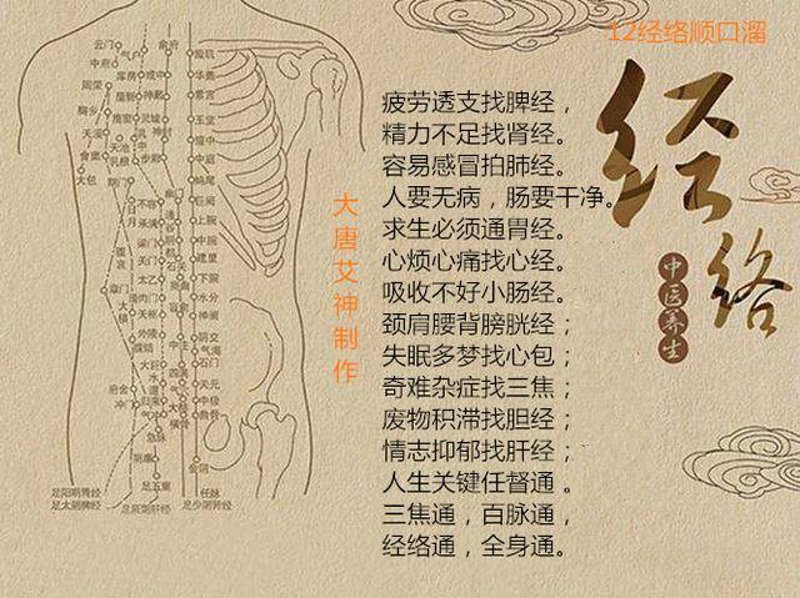 12经络顺口溜
疲劳透支找脾经，
精力不足找肾经。
容易感冒拍肺经。
人要无病，肠要干净。
求生必须通胃经。
心烦心痛找心经。
吸收不好小肠经。
颈肩腰背膀胱经；
失眠多梦找心包；
奇难杂症找三焦；
废物积滞找胆经；
情志抑郁找肝经；
人生关键任督通。
三焦通，百脉通，
经络通，全身通。
经络
中医养生
大唐艾神制作
云门
中府
气户
俞府
璇玑
库房
彧中
华盖
周荣
神藏
紫宫
胸乡
灵墟
玉堂
天溪
天池
神封
膻中
食窦
乳根
步廊
中庭
大包
期门
鸠尾
不容
巨阙
日月
承满
上脘
梁门
中脘
关门
建里
腹哀
太乙
下脘
章门
滑肉门
水分
大横
天枢
神阙
外陵
阴交
气海
石门
大巨
关元
府舍
归来
中极
气冲
曲骨
急脉
阴廉
足五里
会阴
足阳明胃经
足太阴脾经
足厥阴肝经
任脉
足少阴肾经